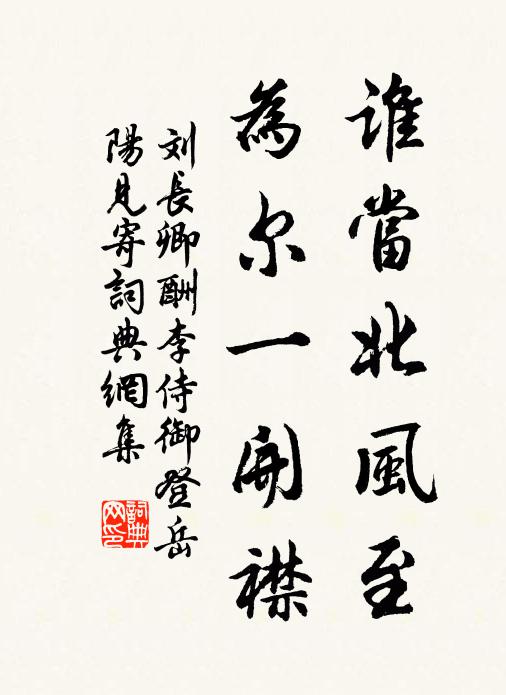 誰當北風至
為尔一開襟
刘長卿酬李侍御登岳
陽見寄詞典網集
詞典網印